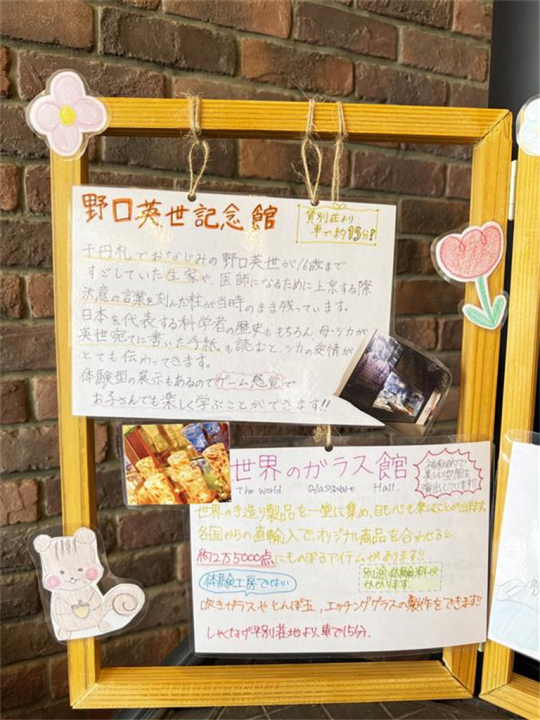 野口英世記念館
貸別荘より
車で約13分!
千円札でおなじみの野口英世が16歳まで
すごしていた生家や、医師になるために上京する際
決意の言葉を刻んだ柱が当時のまま残っています。
日本を代表する科学者の歴史ももちろん、母・シカが
英世宛てに書いた手紙も読むと、シカの愛情が
とても伝わってきます。
体験型の展示もあるのでゲーム感覚で
お子さんでも楽しく学ぶことができます!!
世界のガラス館
The World Glassware Hall.
美しい空間を
演出しています!
世界の手造り製品を一堂に集め、目も心も楽しむことが出来ます。
各国からの直輸入でオリジナル商品を合わせると、
約2万5000点にものぼるアイテムがあります!!
体験工房ではい
別途体験料が
かかります。
吹きガラスやとんぼ玉、エッチンググラスの製作をできます!!
しゃくなげ平別荘地より、車で15分。